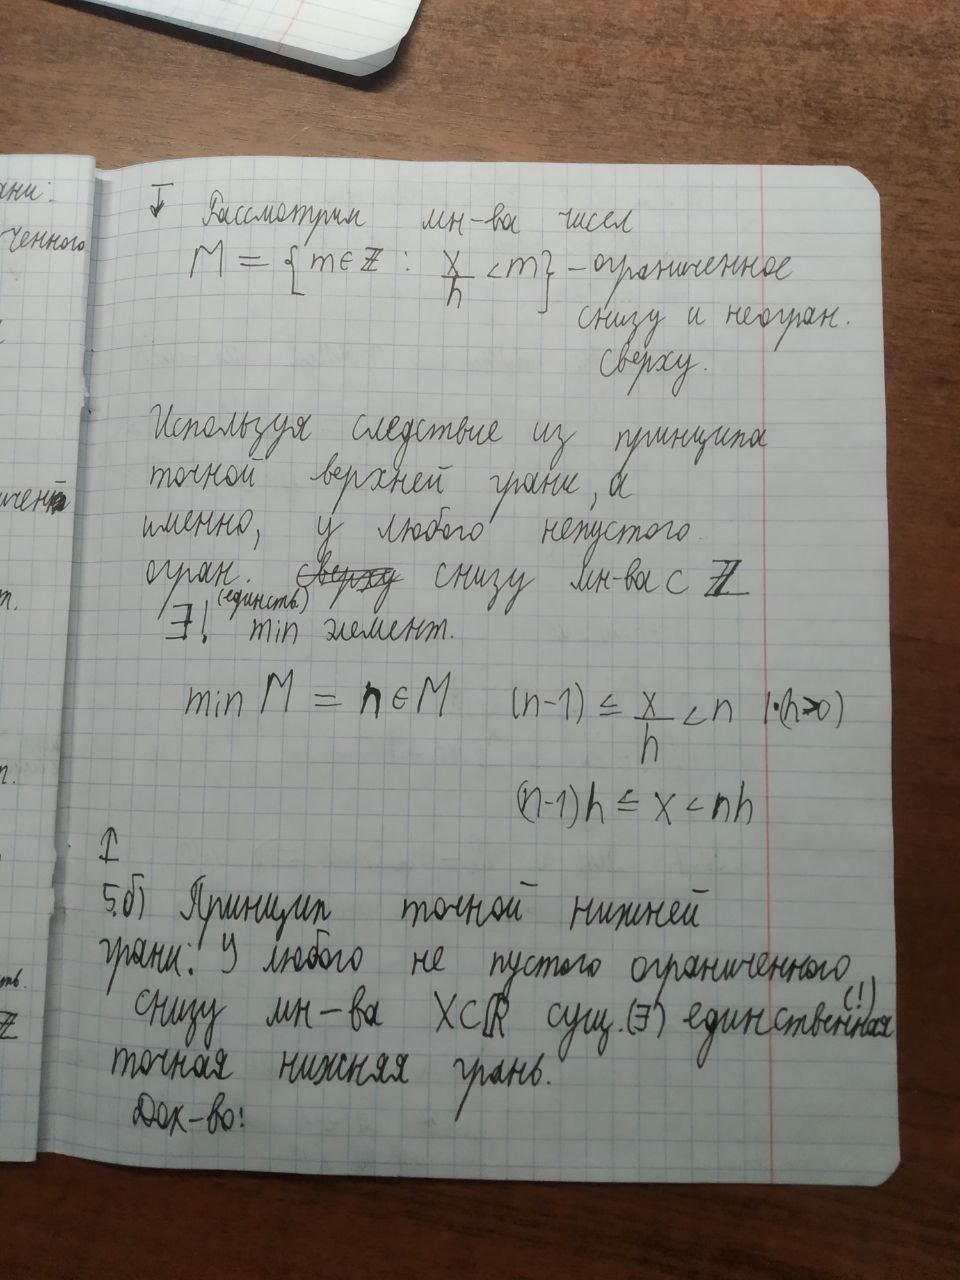 ани:
ченного
Рассмотрим мн-ва чисел
M = {m∈ℤ : x/h < m} – ограниченное
снизу и неогран.
сверху.
Используя следствие из принципа
точной верхней грани, а
именно, у любого непустого
огран. сверху снизу мн-ва ⊂ ℤ
(единств.)
∃! min элемент.
min M = n ∈ M (n-1) ≤ x/h < n |·(h>0)
(n-1)h ≤ x < nh
5.б) Принцип точной нижней
грани: У любого не пустого ограниченного
снизу мн-ва X⊂ℝ сущ.(∃) единственная (!)
точная нижняя грань.
Док-во: